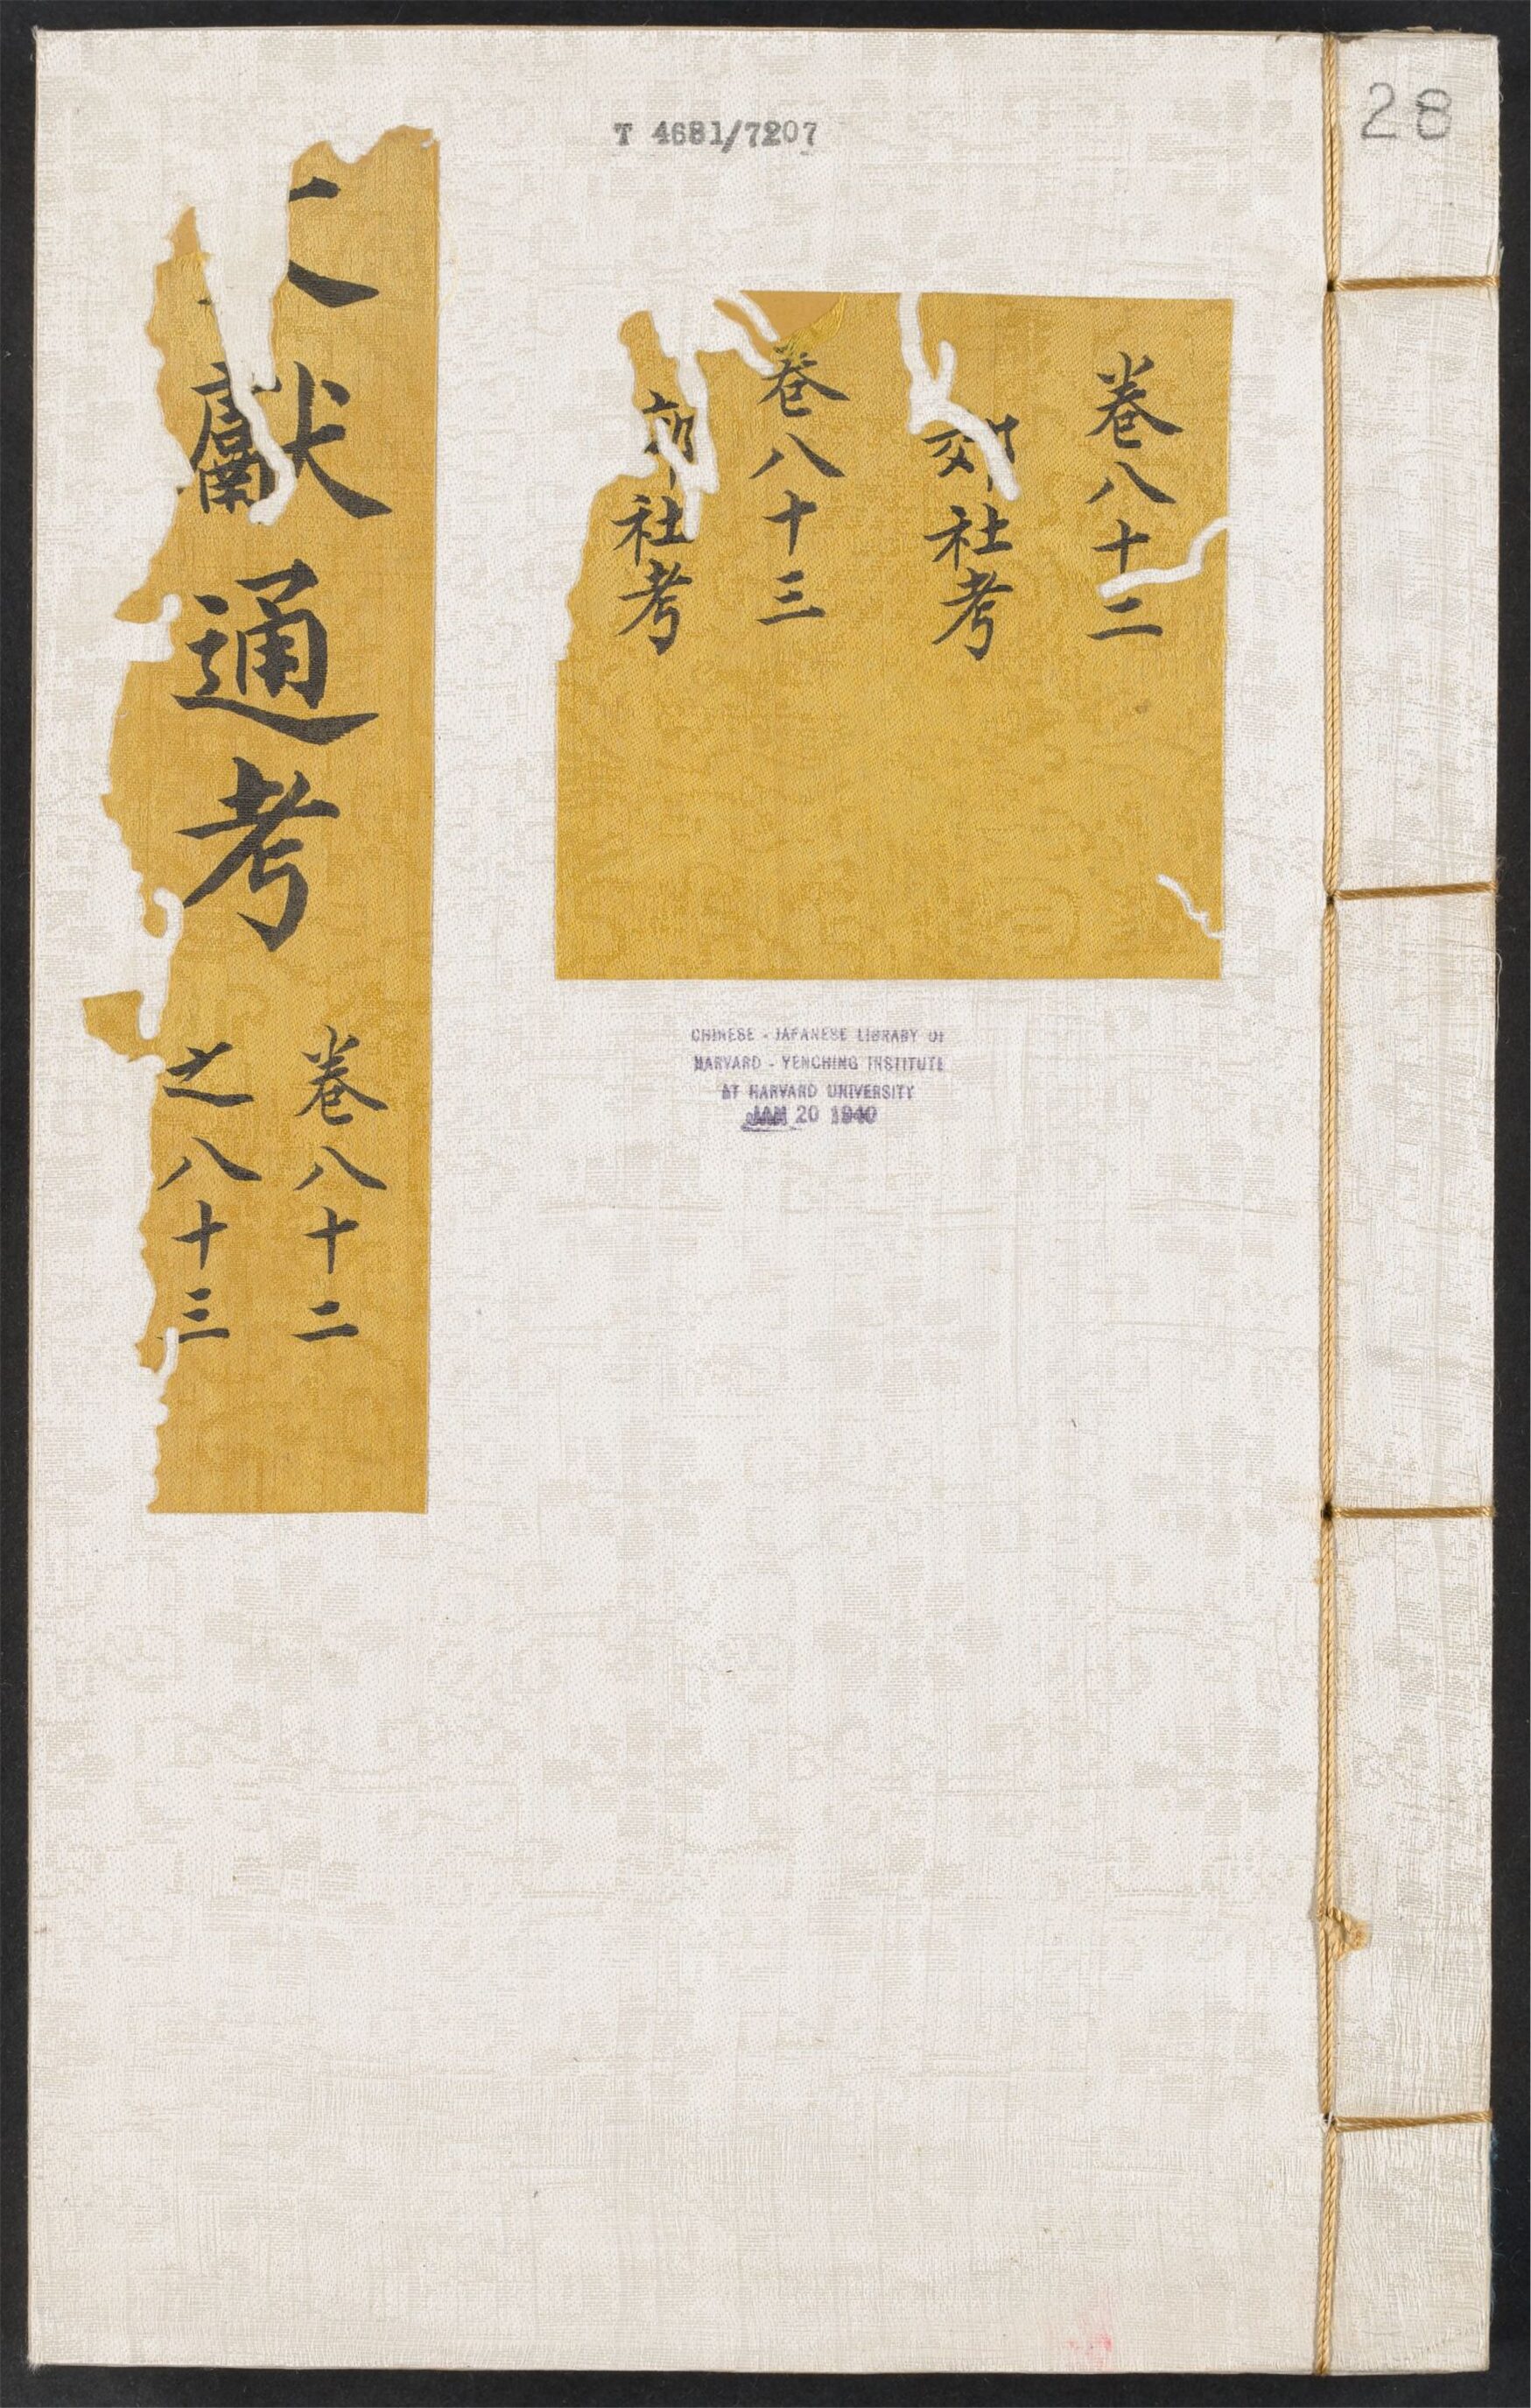 T 4681/7207
28
卷八十二
郊社考
卷八十三
郊社考
文獻通考
卷八十二
之八十三
CHINESE - JAPANESE LIBRARY OF
HARVARD - YENCHING INSTITUTE
AT HARVARD UNIVERSITY
JAN 20 1940